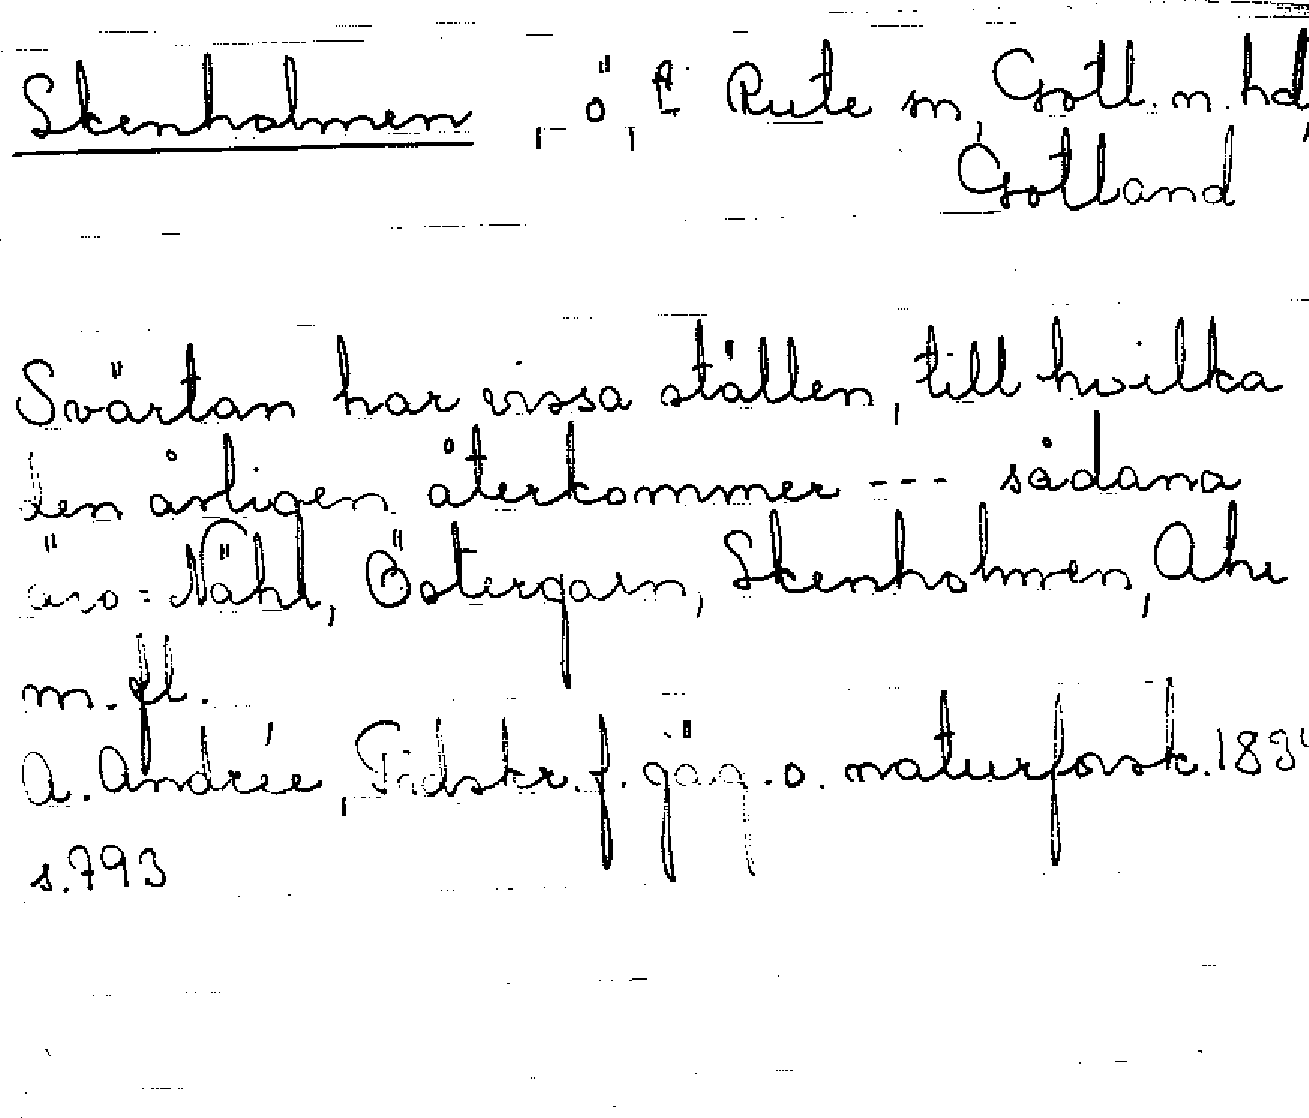 Skenholmen, ö, Rute sn, Gotl. n. hd,
Gotland
Svärtan har vissa ställen, till hvilka
den årligen återkommer --- sådana
äro: Nähr, Östergarn, Skenholmen, Ahr
m. fl.
A. Andrée, Tidskr. f. jäg. o. naturforsk.
s. 793